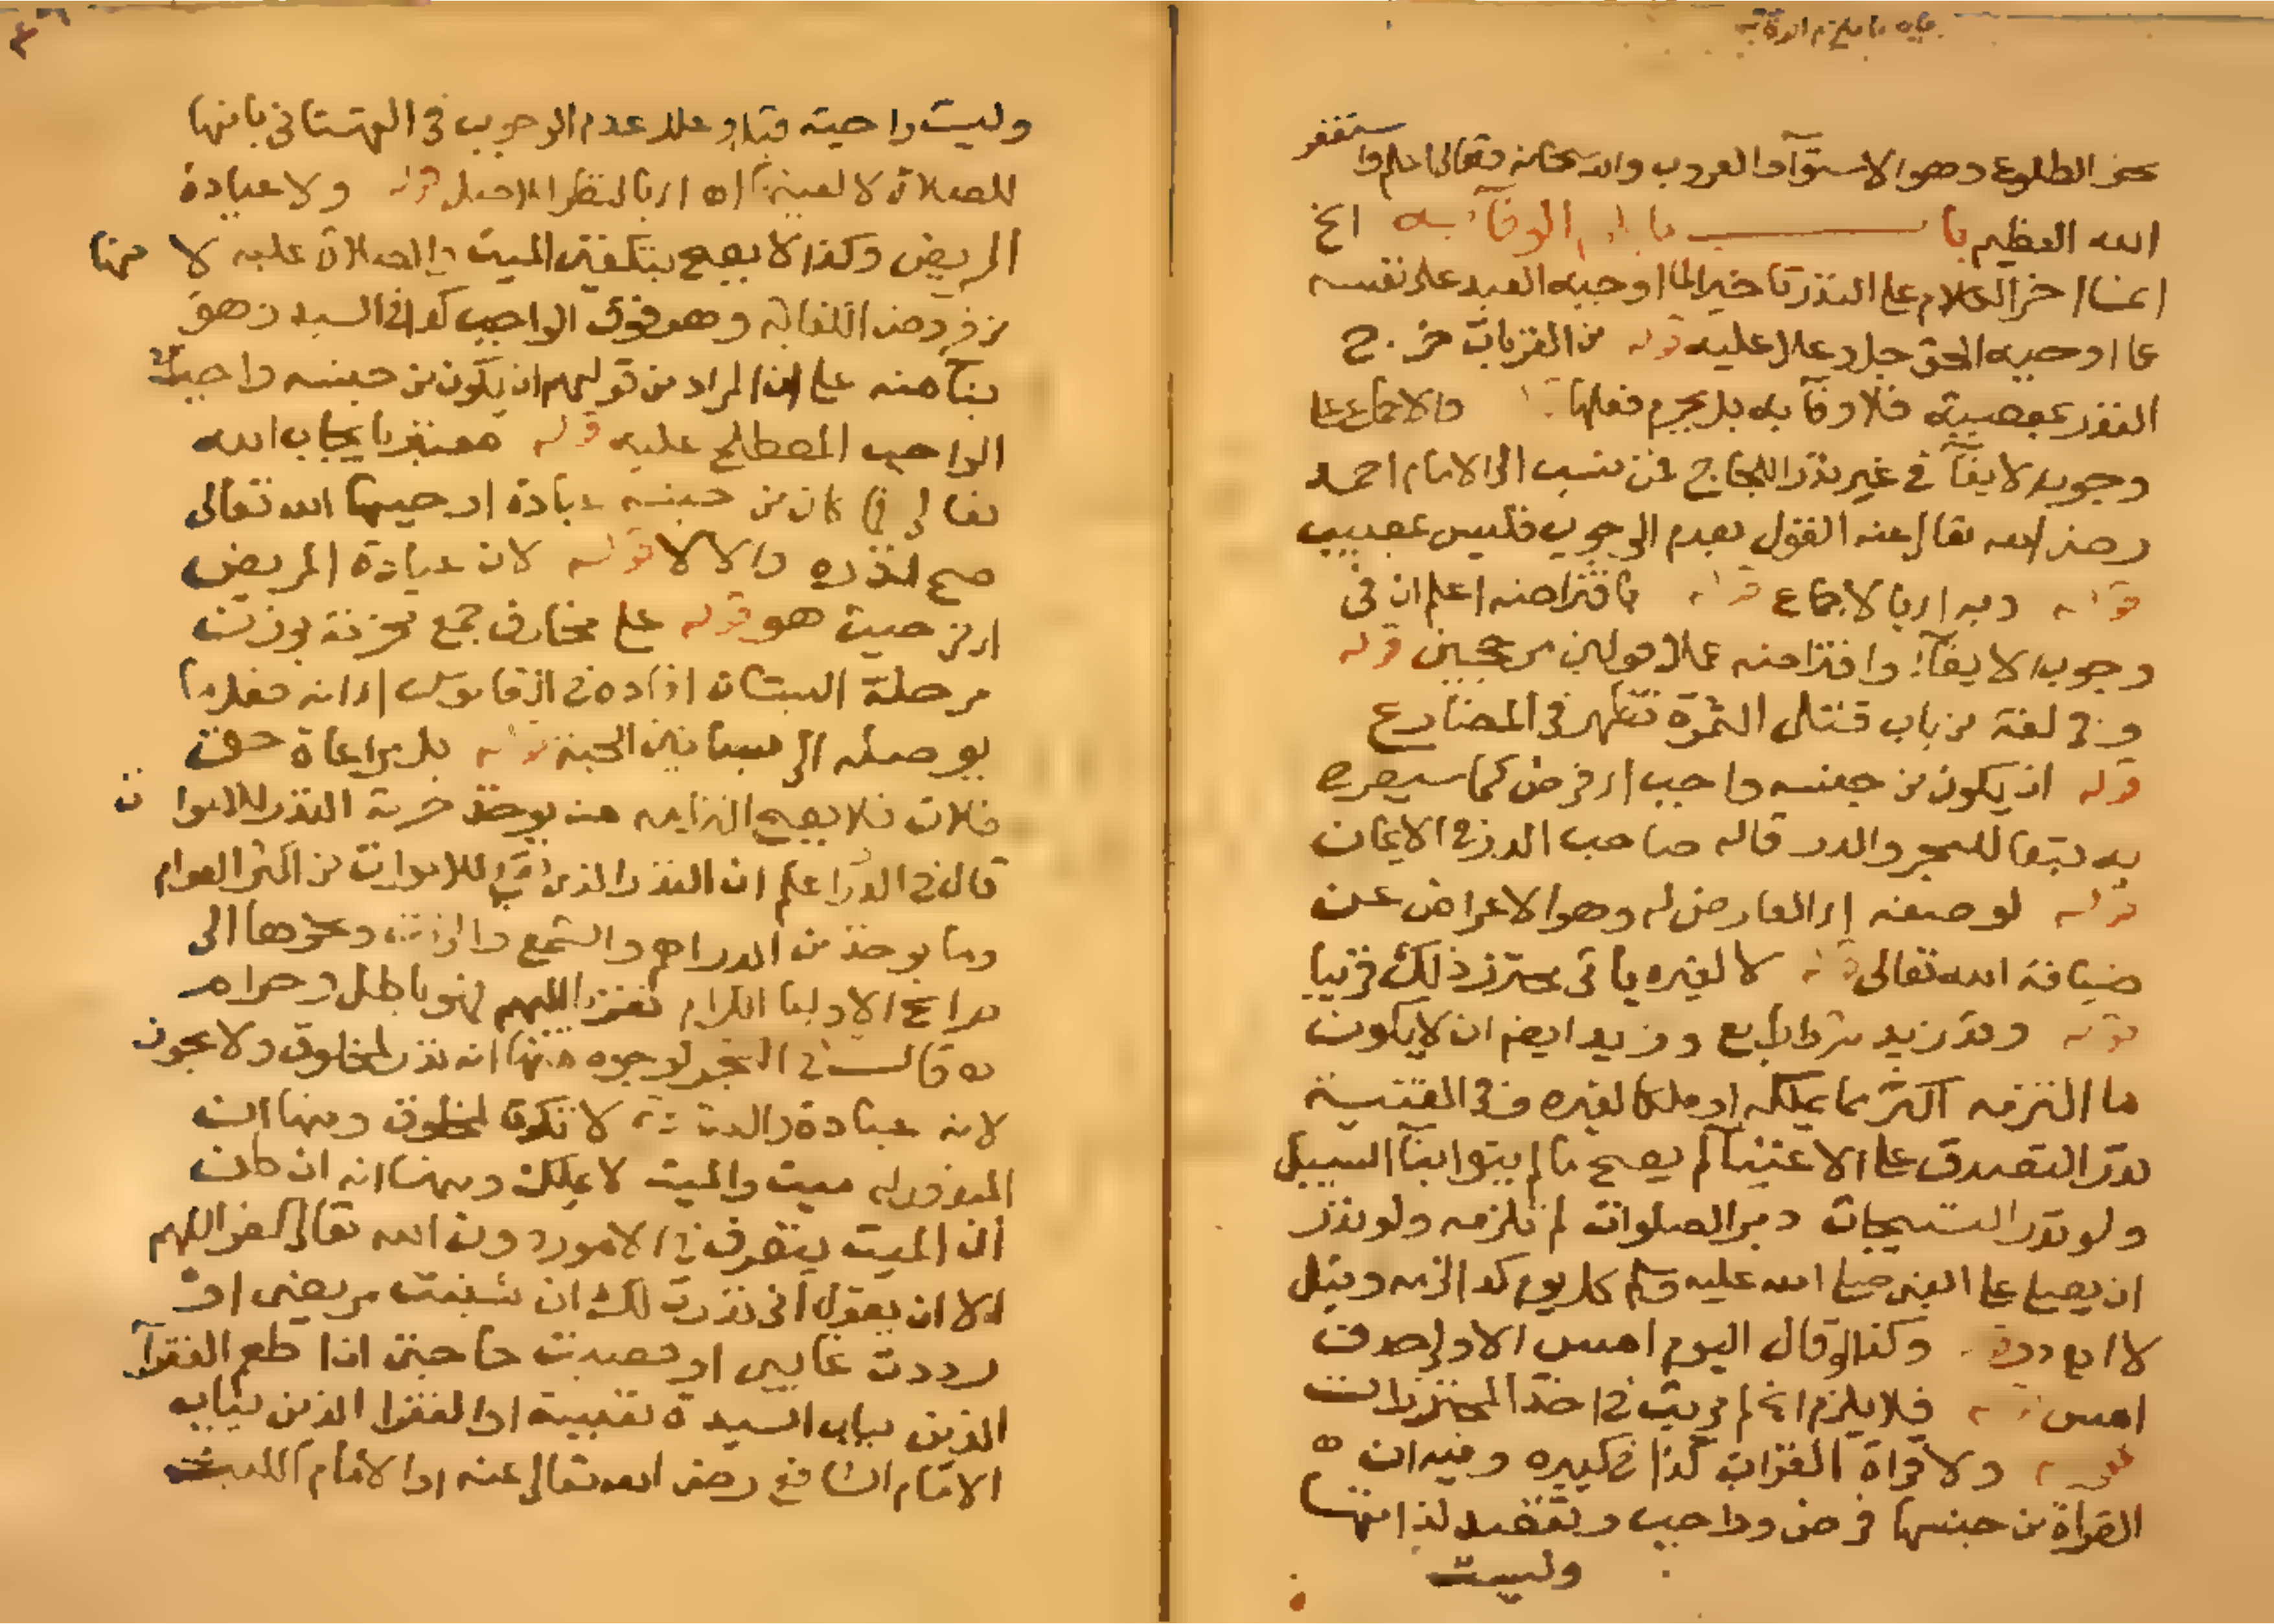 باب ما يلزم الوفا به
عند الطلوع وهو الاستوآ والغروب والله سبحانه وتعالى اعلم واستغفر
الله العظيم باب ما يلزم الوفآ به الخ
انما اخر الكلام على النذر تاخيرا لما اوجبه العبد على نفسه
عما اوجبه الحق جل وعلا عليه قوله من القربات خرج
النذر بمعصية فلا وفآ به بل يحرم فعلها والاجماع على
وجوب الايفآ في غير نذر اللجاج فمن نسب الى الامام احمد
رضي الله تعالى عنه القول بعدم الوجوب فليس بمصيب
قوله وبه اي بالاجماع قوله بافتراضه اعلم ان في
وجوب الايفآ وافتراضه على قولين مرجحين قوله
وفي لغة من باب قتل الثمرة تظهر في المضارع
قوله ان يكون من جنسه واجب اي فرض كما سيصرح
به تبعا للبحر والدرر قاله صاحب الدر في الايمان
قوله لوصفه اي العارض له وهو الاعراض عن
ضيافة الله تعالى قوله لا لغيره ياتي محترز ذلك قريبا
قوله وقد زيد شرط رابع وزيد ايضا ان لا يكون
ما التزمه اكثر مما يملكه او ملكا لغيره وفي القنية
نذر التصدق على الاغنيآ لم يصح ما لم ينو ابنآ السبيل
ولو نذر التسبيحات دبر الصلوات لم تلزمه ولو نذر
ان يصلي على النبي صلى الله عليه وسلم كل يوم كذا لزمه وقيل
لا اهـ در وكذا لو قال اليوم امس الاول او صوم
امس قوله فلا يلزم الخ لم يرتب في اخذ المحترزات
قوله ولا قراة القران كذا في كبيره وفيه ان
القراة من جنسها فرض وواجب وتقصد لذاتها
وليست
وليست واجبة قبل وعلل عدم الوجوب في القهستاني بانها
للصلاة لا لعينها اهـ اي بالنظر للاصل قوله ولا عيادة
المريض وكذا لا يصح بتكفين الميت والصلاة عليه لانها
من فروض الكفاية وهو فوق الواجب كذا في السيد وهو
بنآ منه على ان المراد من قولهم ان يكون من جنسه واجبا
الواجب المصطلح عليه قوله معتبر بايجاب الله
تعالى فما كان من جنسه عبادة اوجبها الله تعالى
صح نذره والا لا قوله لان عيادة المريض
اي من حيث هو قوله على مخارف جمع مخرفة بوزن
مرحلة البستان افاده في القاموس اي انه فعل ما
يوصله الى بساتين الجنة قوله بل مراعاة حق
فلان فلا يصح التزامه منه يوخذ حرمة النذر للاموات
قال في الدر اعلم ان النذر الذي يقع للاموات من اكثر العوام
وما يوخذ من الدراهم والشمع والزيت ونحوها الى
ضرايح الاوليا الكرام تقربا اليهم فهو باطل وحرام
اهـ قال في البحر لوجوه منها انه نذر لمخلوق ولا يجوز
لانه عبادة والعبادة لا تكون لمخلوق ومنها ان
المنذور له ميت والميت لا يملك ومنها انه ان ظن
ان الميت يتصرف في الامور دون الله تعالى كفر اللهم
الا ان يقول اني نذرت لك ان شفيت مريضي او
رددت غايبي او قضيت حاجتي ان اطعم الفقرآ
الذين بباب السيدة نفيسة او الفقرا الذين بباب
الامام الشافعي رضي الله تعالى عنه او الامام الليث